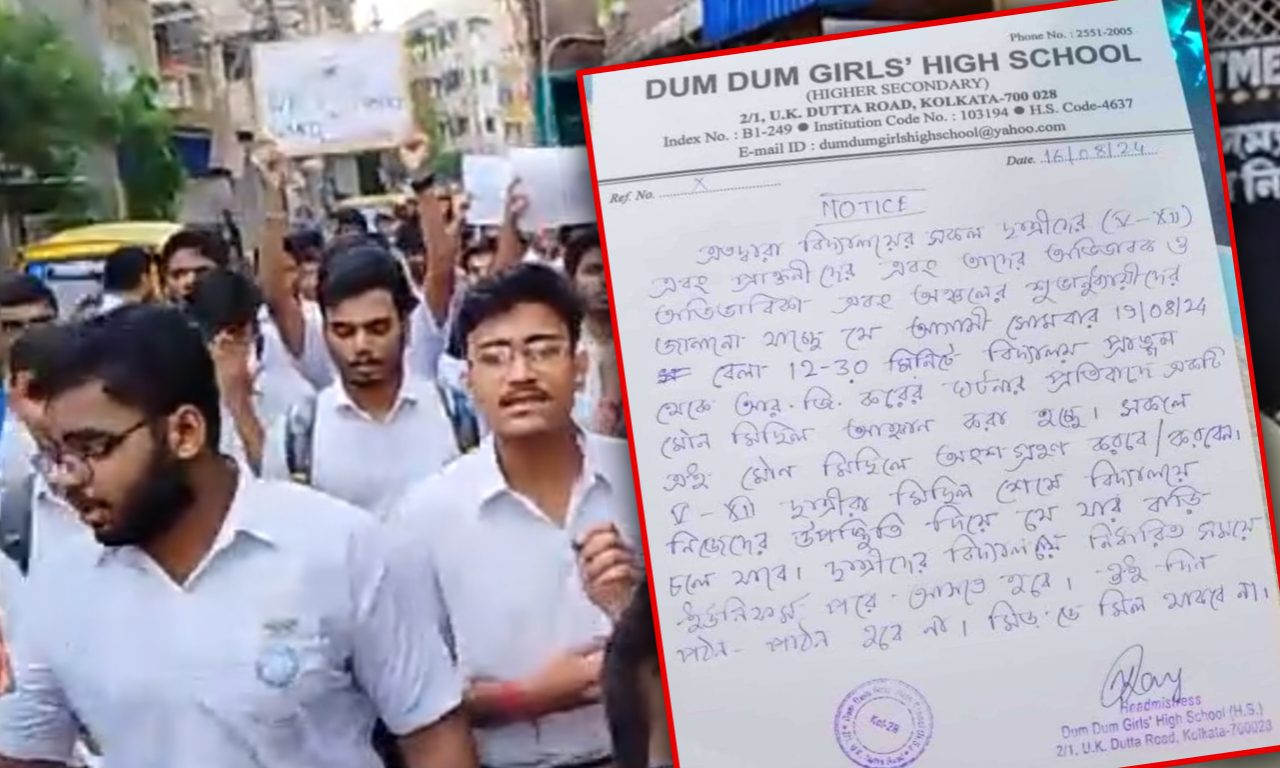 Phone No. : 2551-2005
DUM DUM GIRLS' HIGH SCHOOL
(HIGHER SECONDARY)
2/1, U.K. DUTTA ROAD, KOLKATA-700 028
Index No. : B1-249 ● Institution Code No. : 103194 ● H.S. Code-4637
E-mail ID : dumdumgirlshighschool@yahoo.com
Ref. No. X
Date. 16/08/24
NOTICE
এতদ্বারা বিদ্যালয়ের সকল ছাত্রীদের (V-XII)
এবং প্রাক্তনীদের এবং তাদের অভিভাবক ও
অভিভাবিকা এবং অঞ্চলের শুভানুধ্যায়ীদের
জানানো যাচ্ছে যে আগামী সোমবার 19/08/24
বেলা 12-30 মিনিটে বিদ্যালয় প্রাঙ্গন
থেকে আর.জি. করের ঘটনার প্রতিবাদে একটি
মৌন মিছিল আহ্বান করা হচ্ছে। সকলে
এই মৌন মিছিলে অংশগ্রহণ করবে/করবেন।
V-XII ছাত্রীরা মিছিল শেষে বিদ্যালয়ে
নিজেদের উপস্থিতি দিয়ে যে যার বাড়ি
চলে যাবে। ছাত্রীদের বিদ্যালয় নির্ধারিত সময়ে
ইউনিফর্ম পরে আসতে হবে। ঐ দিন
পঠন-পাঠন হবে না। মিড ডে মিল থাকবে না।
Headmistress
Dum Dum Girls' High School (H.S.)
2/1, U.K. Dutta Road, Kolkata-700028
Kol-28